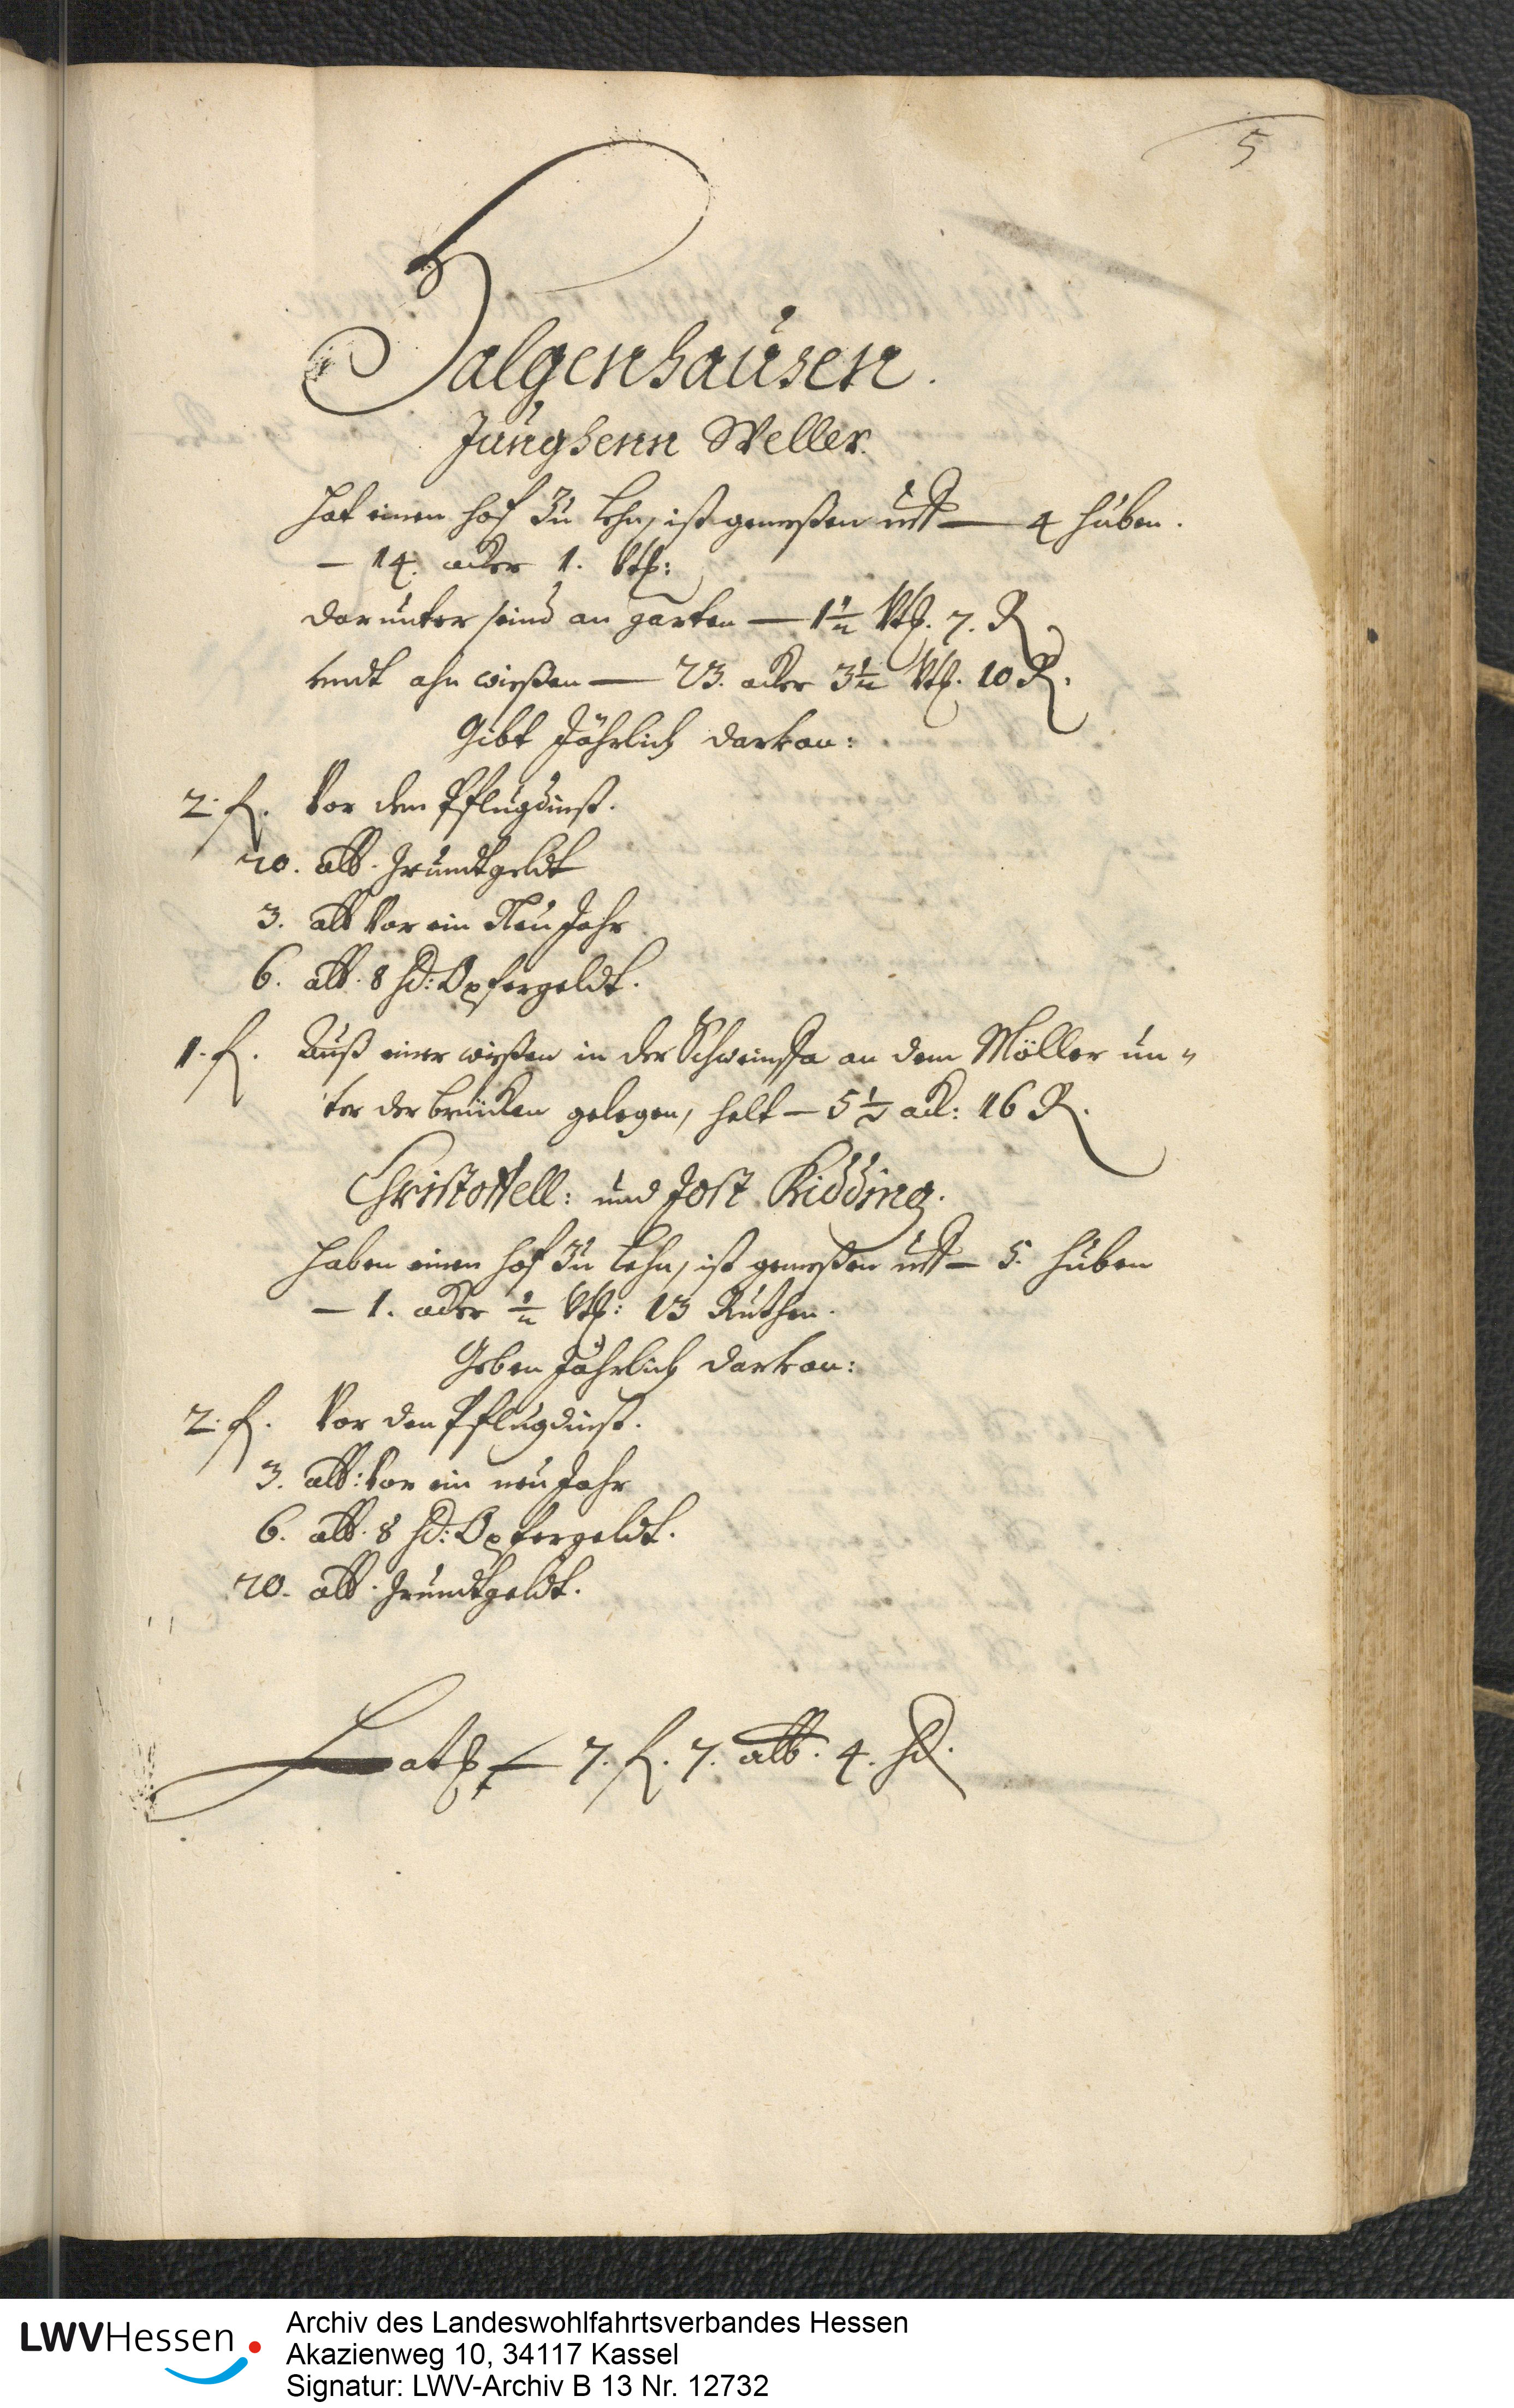 5
Salgenhausen.
Junghenn Weller.
Hat einen Hof zu Lehn, ist gemeßen uff — 4 Huben.
— 14. acker 1. Vtl:
darunter seind an garten — 1 1/2 Vtl. 7. R.
undt ahn wießen — 23. acker 3 1/2 Vtl. 10 R.
Gibt Jährlich darvon:
2. fl. Vor den Pflugdinst.
20. alb. Grundtgeldt
3. alb Vor ein Neu Jahr
6. alb. 8 hl: Opfergeldt.
1. fl. Auß einer wießen in der Schweinsfa an dem Möller un„
ter der brücken gelegen, helt — 5 1/2 ack: 16 R.
Christoffell: und Jost Kidding.
Haben einen Hof zu Lehn, ist gemeßen uff — 5. Huben
— 1. acker 1/2 Vtl: 13 Ruthen.
Geben Jährlich darvon:
2. fl. Vor den Pflugdinst.
3. alb: Vor ein neu Jahr
6. alb. 8 hl: Opfergeldt.
20. alb. Grundtgeldt.
Latus — 7. fl. 7. alb. 4. hl.
LWVHessen
Archiv des Landeswohlfahrtsverbandes Hessen
Akazienweg 10, 34117 Kassel
Signatur: LWV-Archiv B 13 Nr. 12732